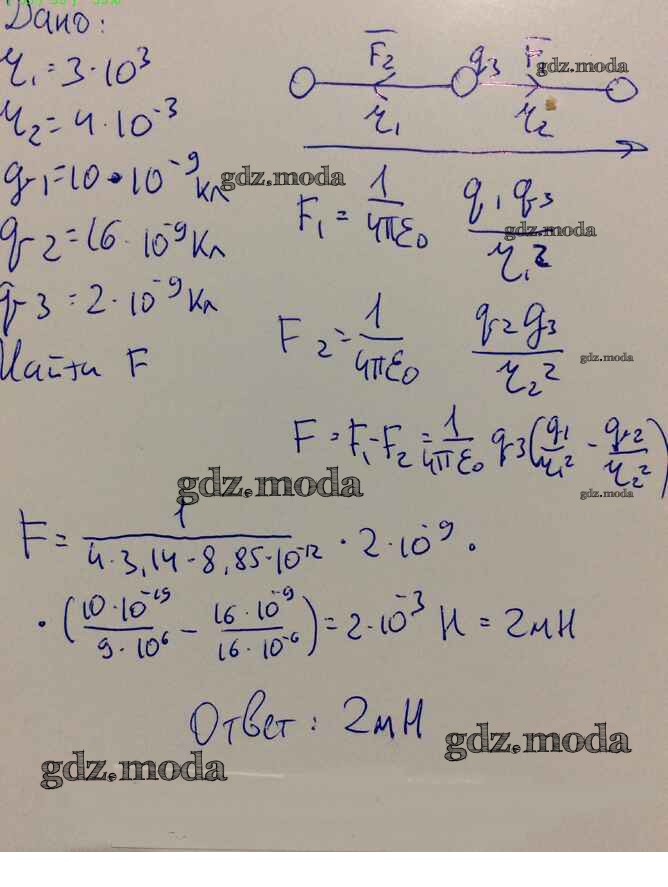 Дано:
r₁ = 3·10³
r₂ = 4·10⁻³
q₁ = 10·10⁻⁹ Кл
q₂ = 16·10⁻⁹ Кл
q₃ = 2·10⁻⁹ Кл
Найти F
F₂ q₃ F
gdz.moda
r₁ r₂
gdz.moda
F₁ = 1/4πε₀ q₁q₃/r₁²
gdz.moda
F₂ = 1/4πε₀ q₂q₃/r₂²
gdz.moda
F = F₁ - F₂ = 1/4πε₀ q₃(q₁/r₁² - q₂/r₂²)
gdz.moda
gdz.moda
F = 1/4·3,14·8,85·10⁻¹² · 2·10⁻⁹ ·
· (10·10⁻¹⁹/9·10⁶ - 16·10⁻⁹/16·10⁻⁶) = 2·10⁻³ Н = 2мН
Ответ: 2мН
gdz.moda
gdz.moda